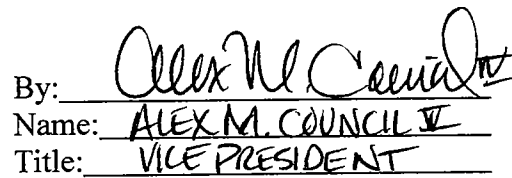 By: Alex M. Council IV
Name: ALEX M. COUNCIL IV
Title: VICE PRESIDENT